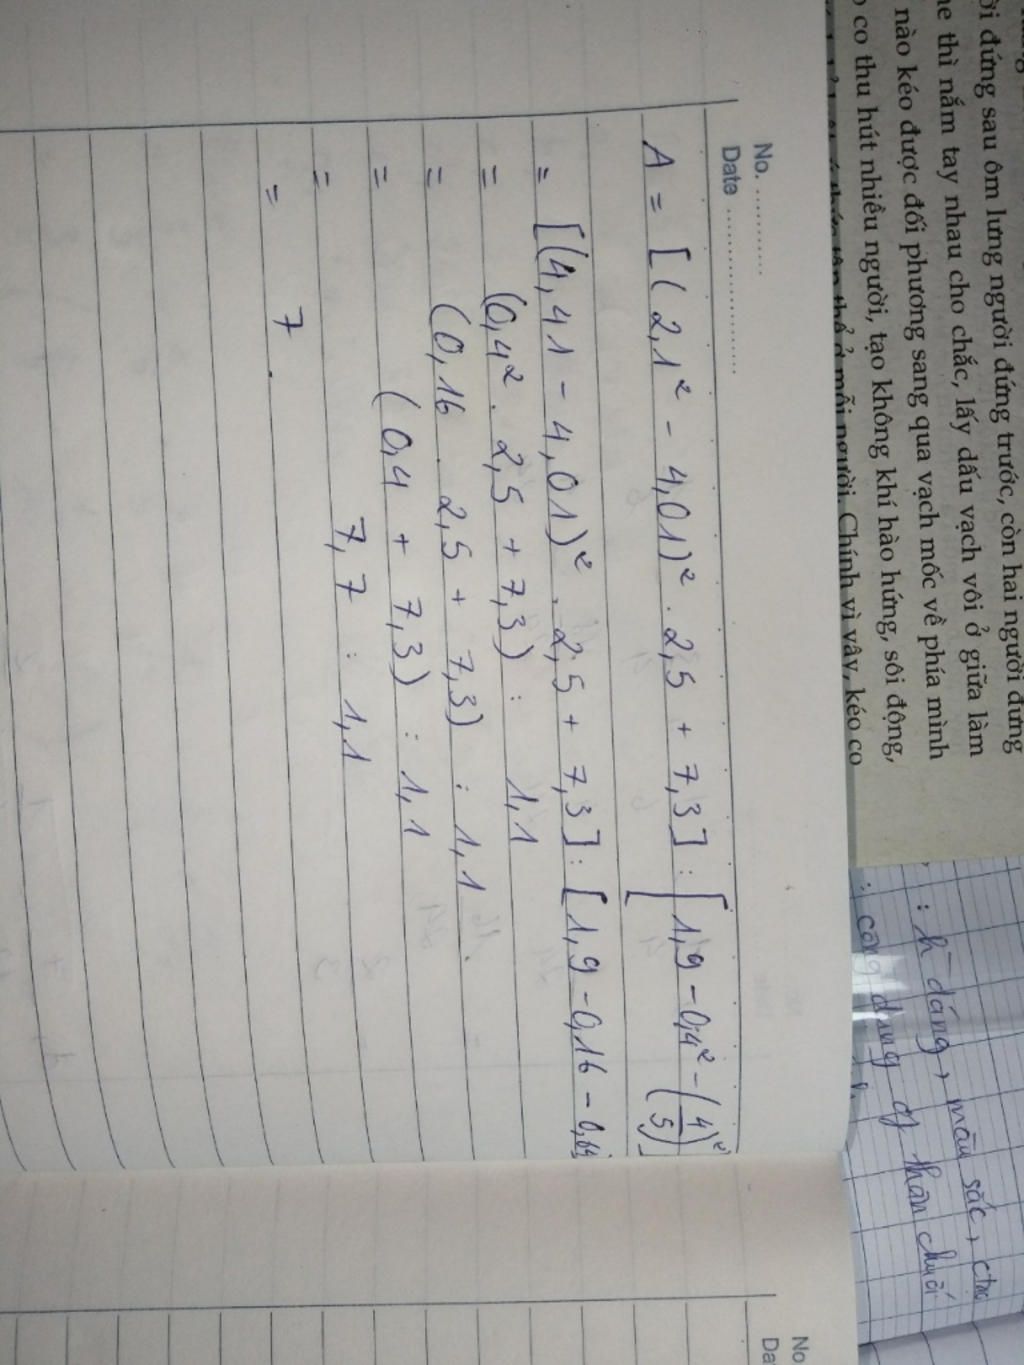 ời đứng sau ôm lưng người đứng trước, còn hai người đứng
e thì nắm tay nhau cho chắc, lấy dấu vạch vôi ở giữa làm
nào kéo được đối phương sang qua vạch mốc về phía mình
co thu hút nhiều người, tạo không khí hào hứng, sôi động,
mỗi người. Chính vì vậy, kéo co
: h dáng, màu sắc,
: công dụng of thân chuối
No. ............
Date .....................
A = [(2,1² - 4,01)² . 2,5 + 7,3] : [1,9 - 0,4² - (4/5)²]
= [(4,41 - 4,01)² . 2,5 + 7,3] : [1,9 - 0,16 - 0,64
= (0,4² . 2,5 + 7,3) : 1,1
= (0,16 . 2,5 + 7,3) : 1,1
= (0,4 + 7,3) : 1,1
= 7,7 : 1,1
= 7.
No
Da